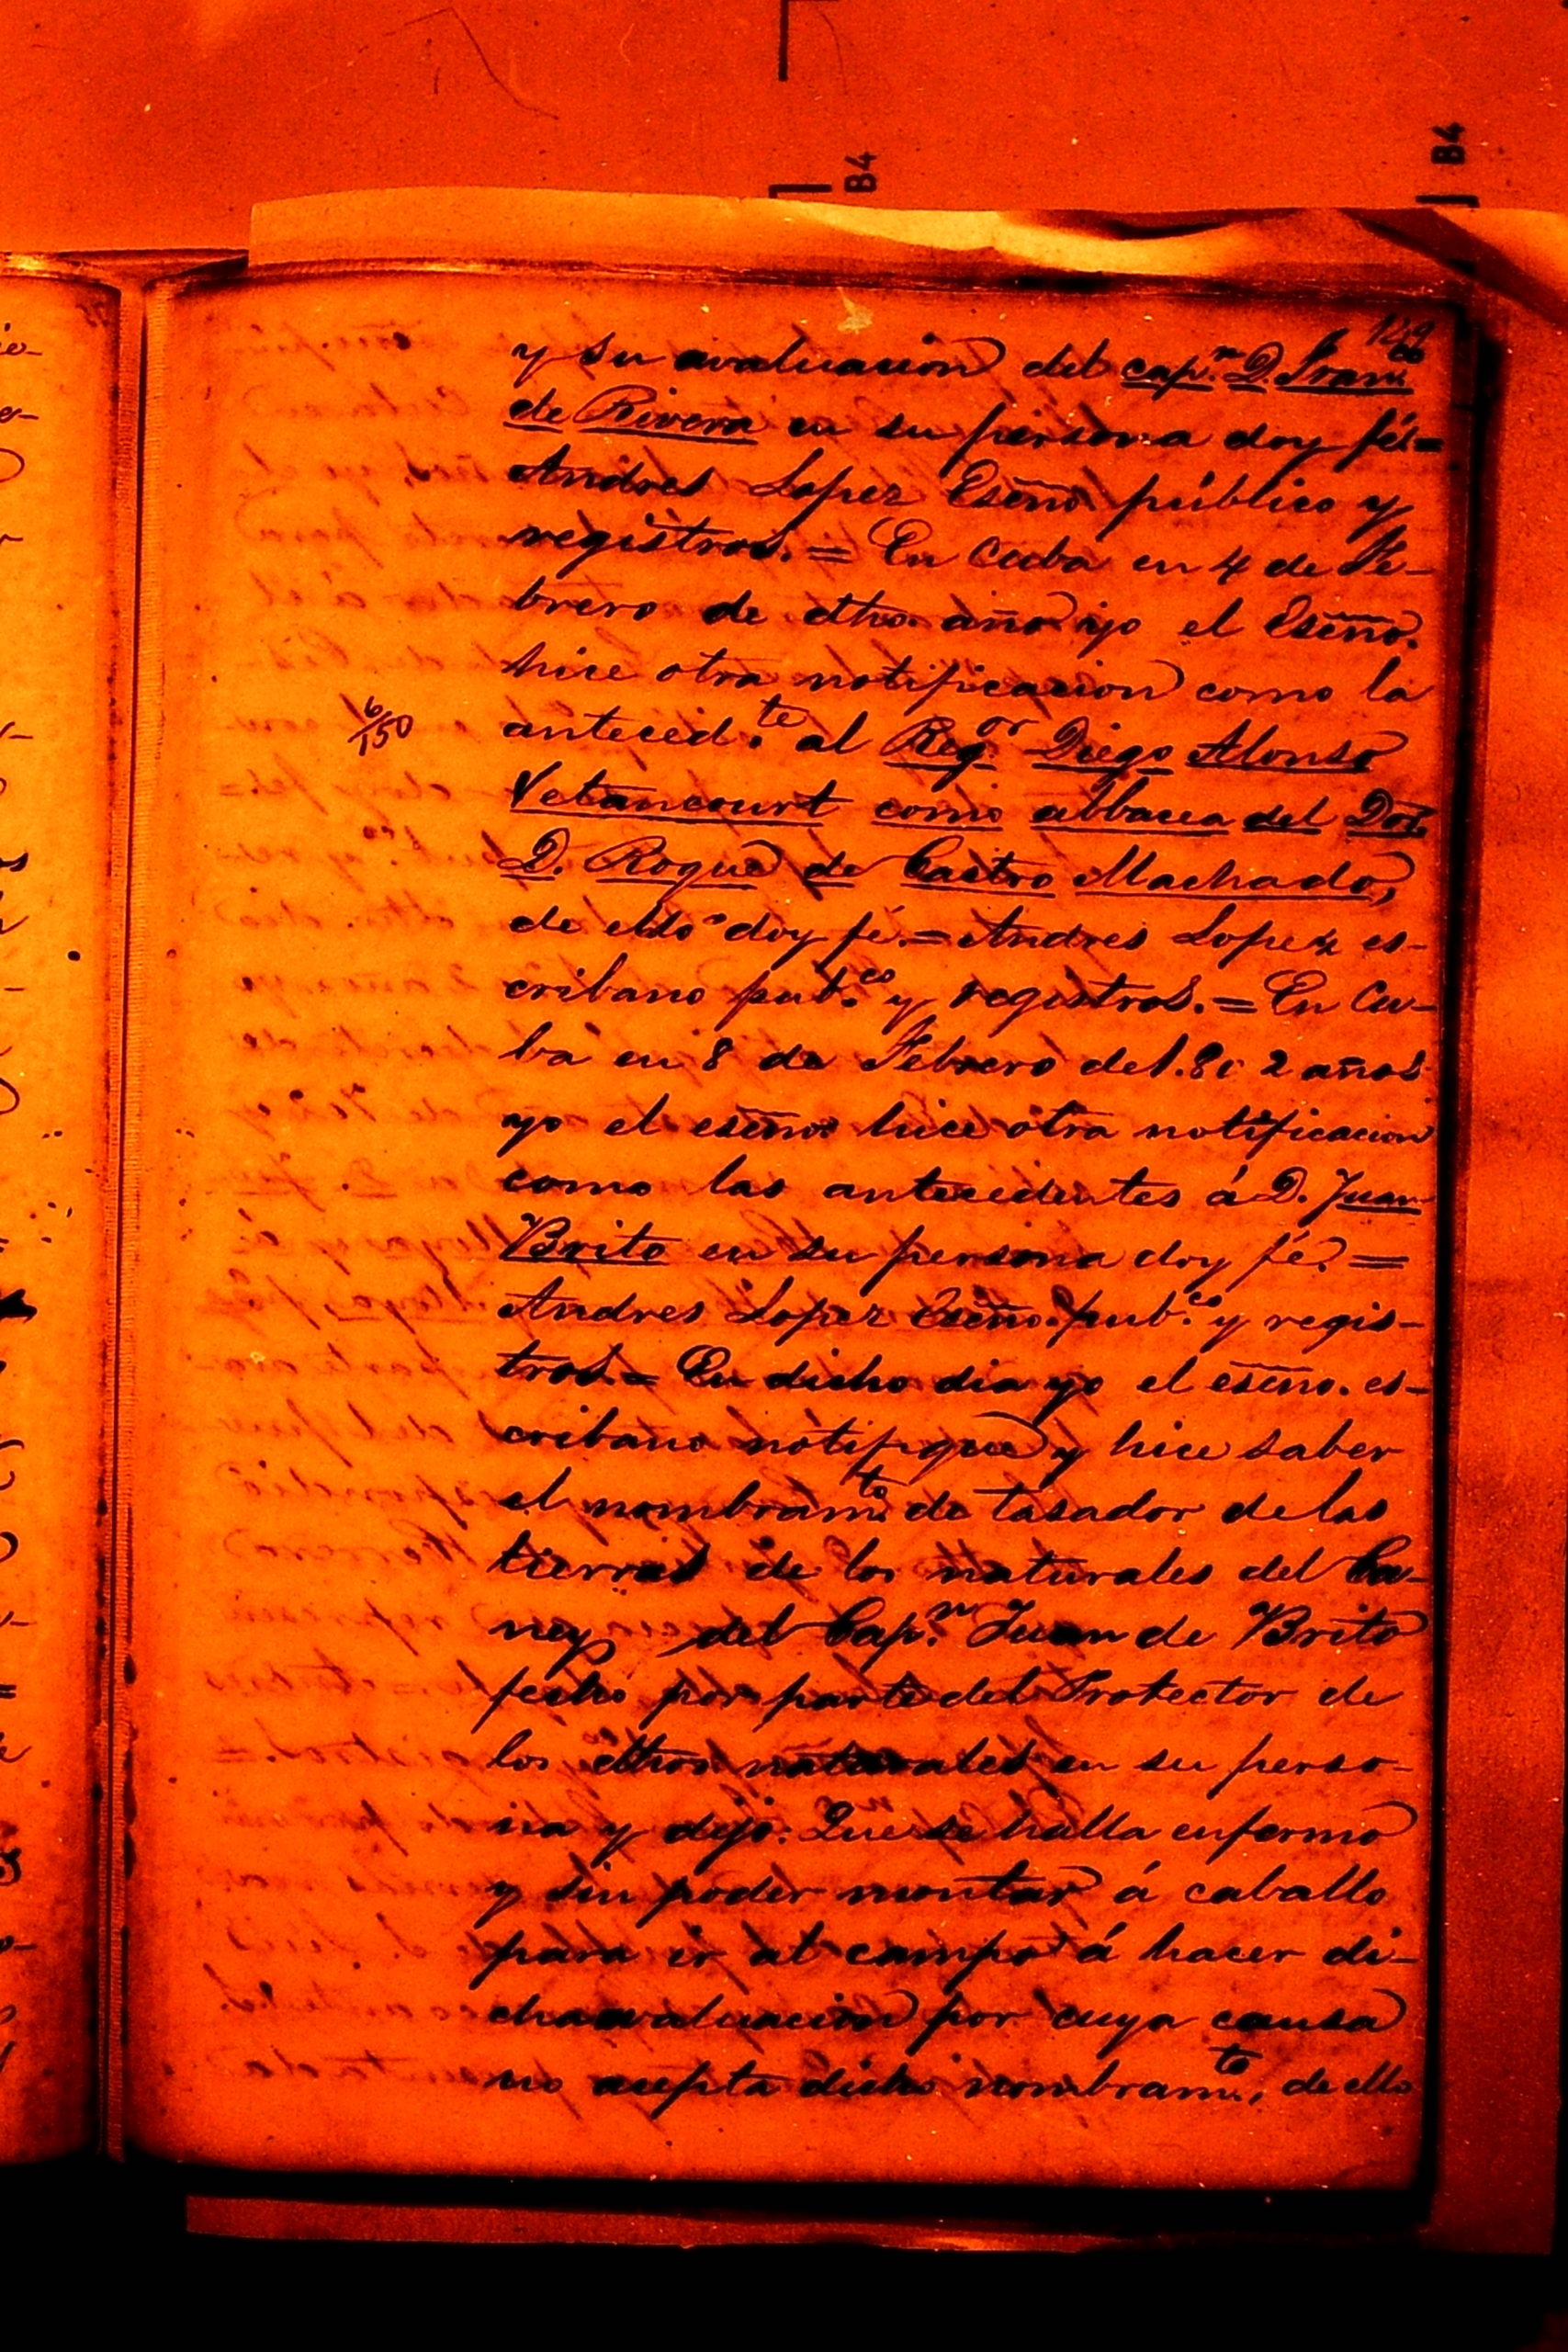 B4
B4
149
y su avaluacion del cap.n D. Franco
de Rivera en su persona doy fé=
Andres Lopez Esčno público y
registros.= En Cuba en 4 de Fe-
brero de dho. año yo el Esčno.
hice otra notificacion como la
6/150
anteced.te al Reg.or Diego Alonso
Vetancourt como albacea del Dor.
D. Roque de Castro Machado,
de ello doy fé.= Andres Lopez es-
cribano pub.co y registros.= En Cu-
ba en 8 de Febrero de 2 años
yo el esčno. hice otra notificacion
como las antecedentes á D. Juan
Brito en su persona doy fé.=
Andres Lopez Esčno. pub.co y regis-
tros.= En dicho dia yo el esčno. es-
cribano notifiqué y hice saber
el nombram.to de tasador de las
tierras de los naturales del Ca-
ney del Cap.n Juan de Brito
fecho por parte del Protector de
los dhos. naturales en su perso-
na y dijo: Que se halla enfermo
y sin poder montar á caballo
para ir al campo á hacer di-
cha avaluacion por cuya causa
no acepta dicho nombram.to, de ello